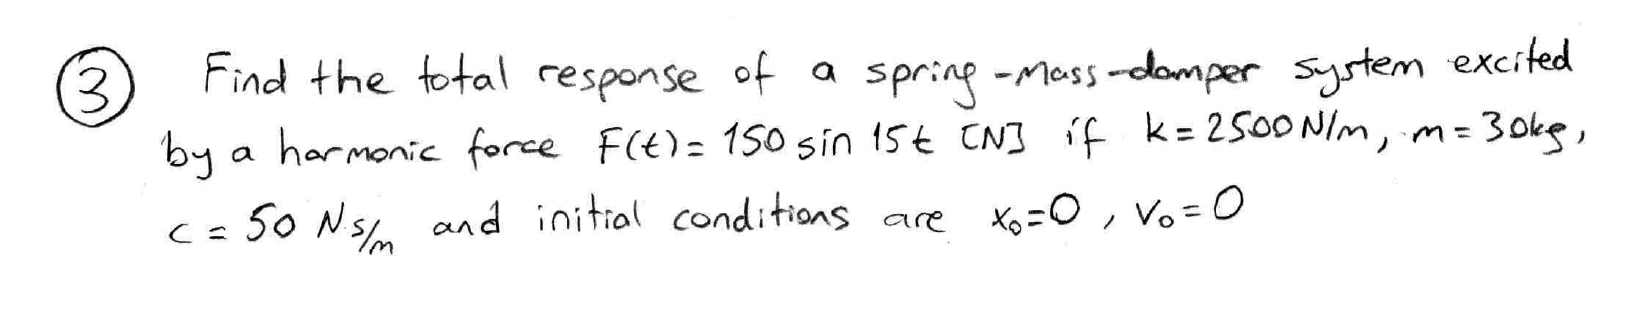 ③ Find the total response of a spring-mass-damper system excited
by a harmonic force F(t) = 150 sin 15t [N] if k = 2500 N/m, m = 30kg,
c = 50 Ns/m and initial conditions are x₀=0, V₀=0